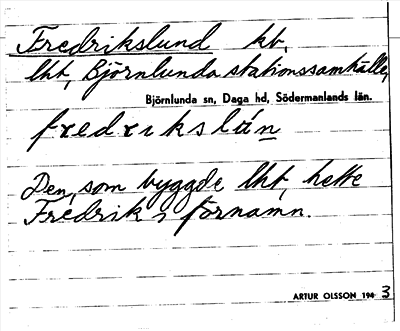 Fredrikslund kt.
lht, Björnlunda stationssamhälle,
Björnlunda sn, Daga hd, Södermanlands län.
fredrikslún
Den, som byggde lht, hette
Fredrik i förnamn.
ARTUR OLSSON 194 3